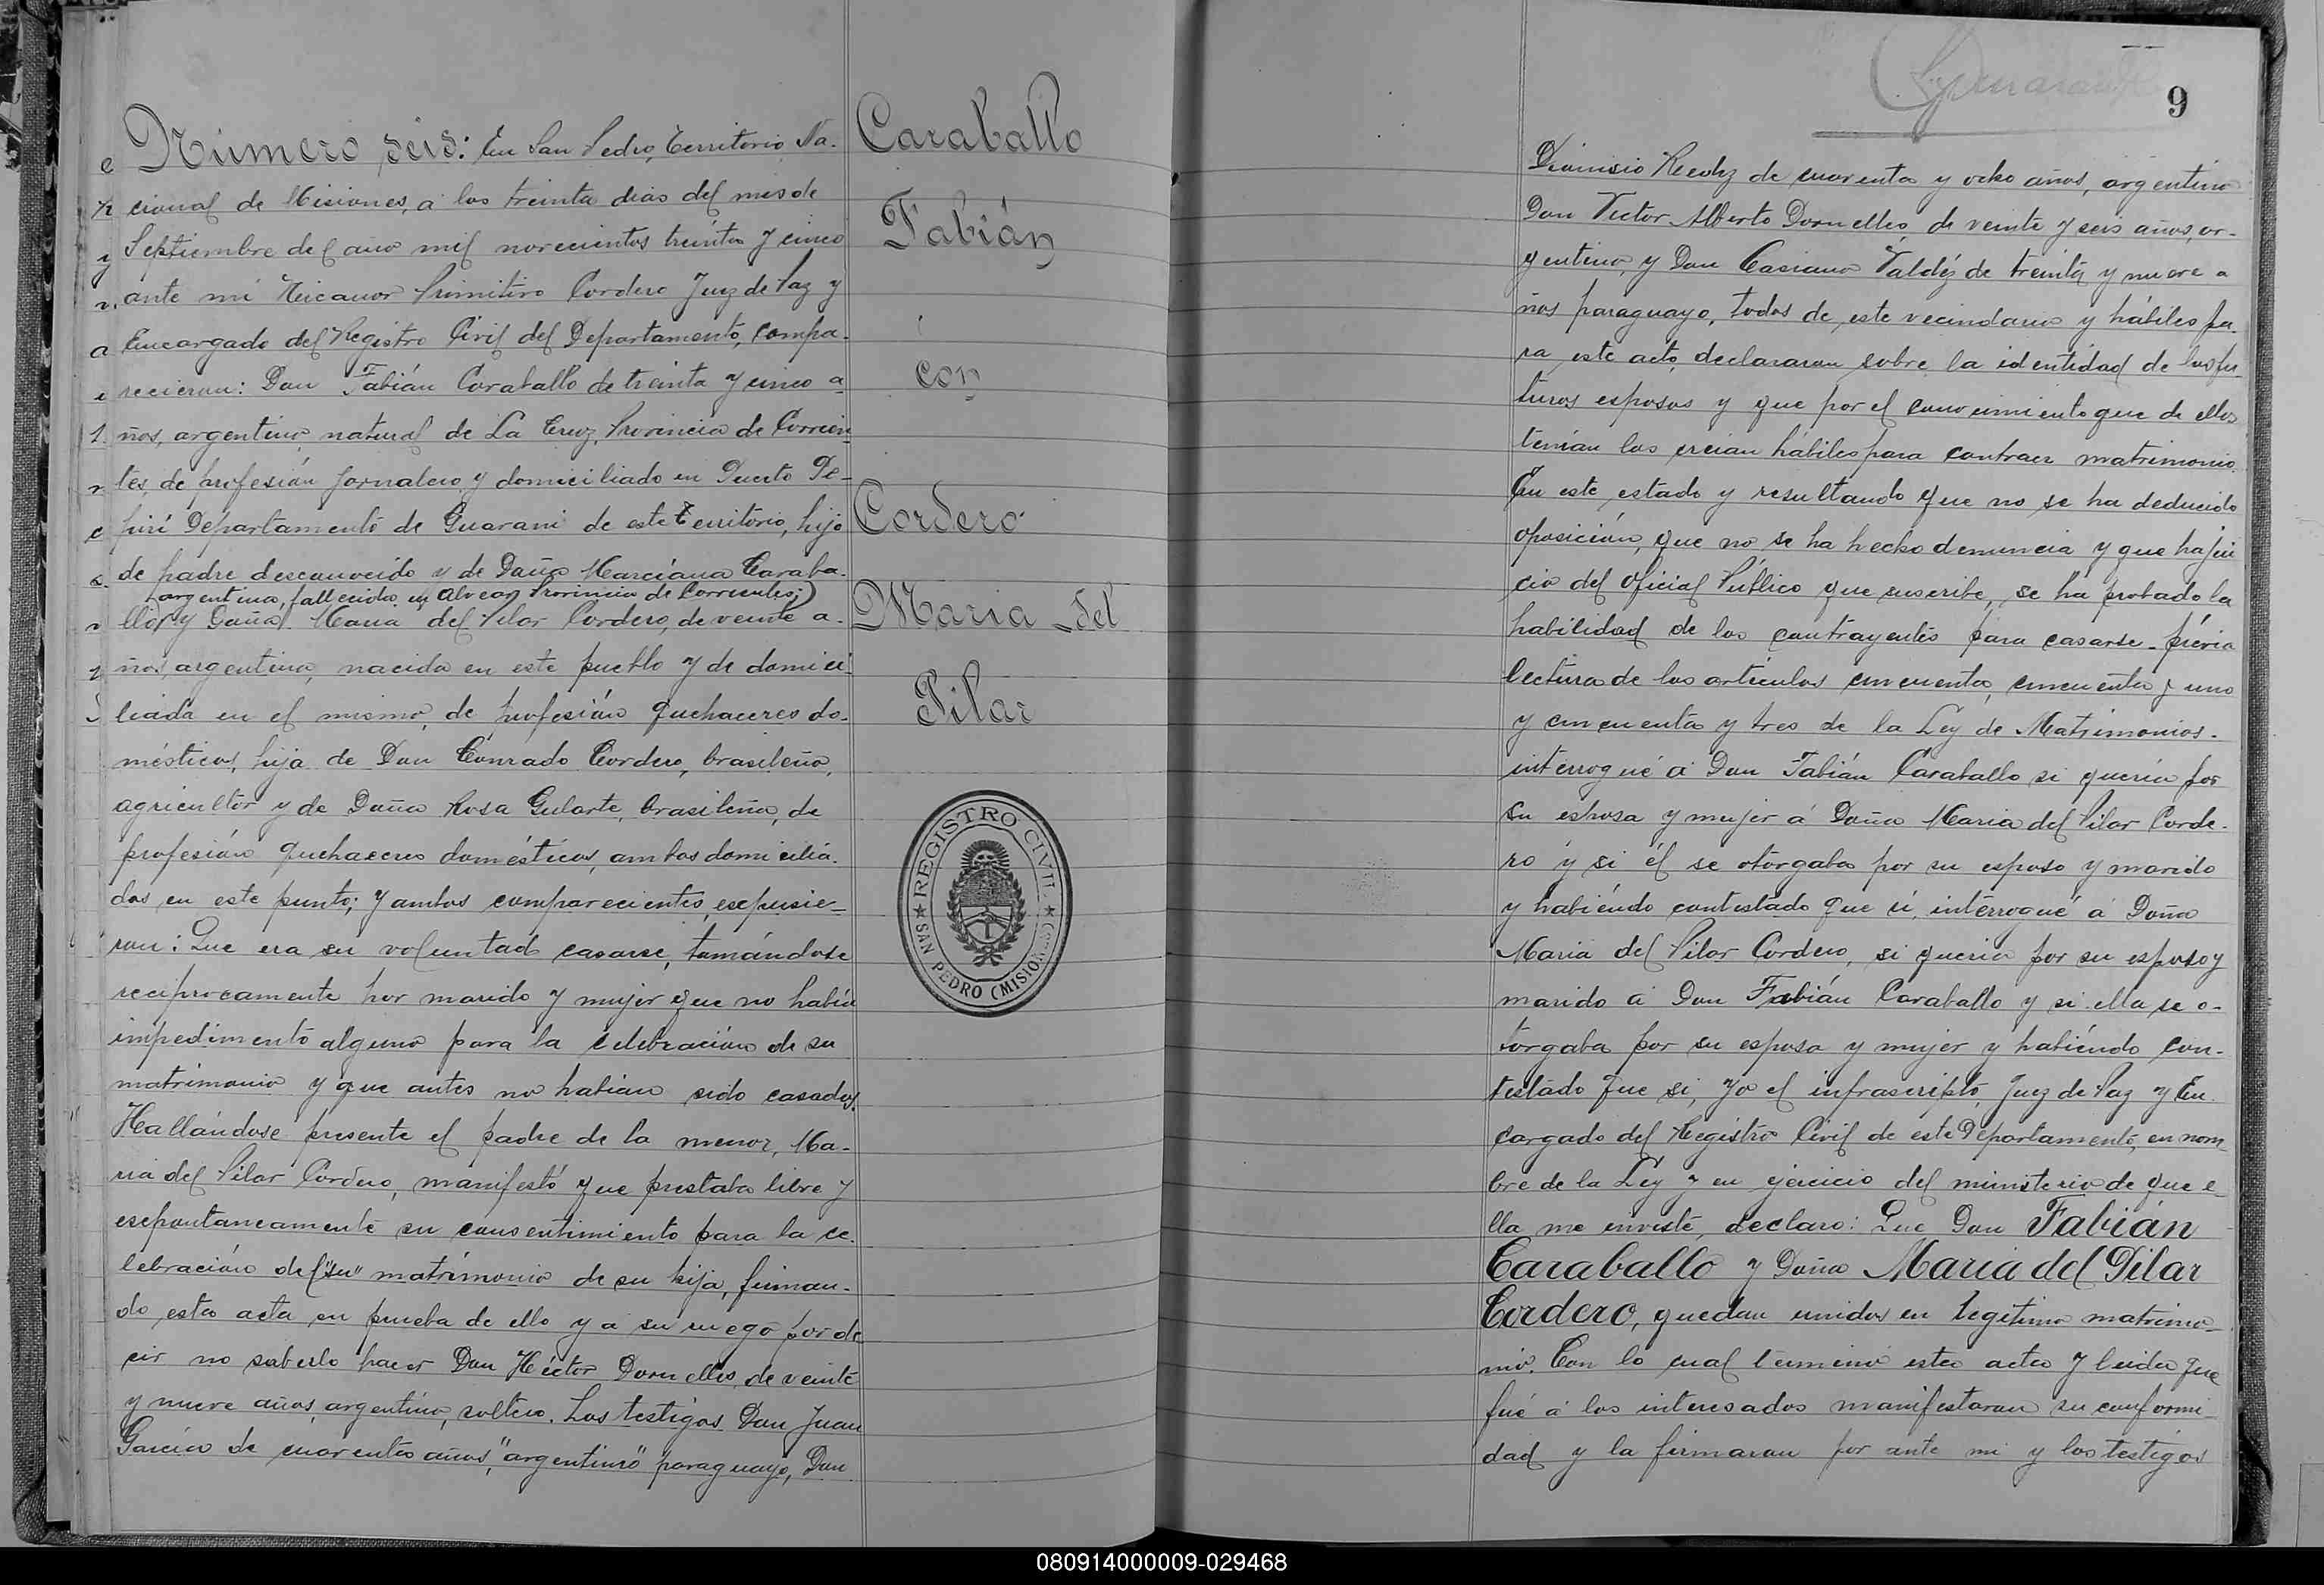 Número seis: En San Pedro, Territorio Na-
cional de Misiones, á los treinta dias del mes de
Septiembre del año mil novecientos treinta y cinco
ante mí Nicanor Primitivo Cordero Juez de Paz y
Encargado del Registro Civil del Departamento, compa-
recieron: Don Fabián Caraballo de treinta y cinco a-
ños, argentino, natural de La Cruz, Provincia de Corrien-
tes, de profesión jornalero y domiciliado en Puerto Pe-
pirí Departamento de Guarani de este Territorio, hijo
de padre desconocido y de Doña Marciana Caraba-
(argentina, fallecida en Alvear Provincia de Corrientes;)
llo y Doña Maria del Pilar Cordero, de veinte a-
ños, argentina, nacida en este pueblo y de domici-
liada en el mismo, de profesión quehaceres do-
mésticos, hija de Don Conrado Cordero, brasileño,
agricultor y de Doña Rosa Gularte, brasileña, de
profesión quehaceres domésticos, ambos domicilia-
dos en este punto; y ambos comparecientes, expusie-
ron: Que era su voluntad casarse, tomándose
reciprocamente por marido y mujer que no había
impedimento alguno para la celebración de su
matrimonio y que antes no habian sido casados.
Hallándose presente el padre de la menor, Ma-
ria del Pilar Cordero, manifestó que prestaba libre y
espontaneamente su consentimiento para la ce-
lebración del "su" matrimonio de su hija, firman-
do esta acta en prueba de ello y a su ruego por de
cir no saberlo hacer Don Héctor Dornelles, de veinte
y nueve años, argentino, soltero. Los testigos Don Juan
García de cuarenta años, "argentino" paraguayo, Don
Caraballo
Fabián
con
Cordero
Maria del
Pilar
REGISTRO CIVIL
SAN PEDRO (MISIONES)
9
Dionisio de cuarenta y ocho años, argentino
Don Victor Alberto Dornelles de veinte y seis años, ar-
gentino, y Don Casiano Valdéz de treinta y nueve a
ños paraguayo, todos de este vecindario y hábiles pa
ra este acto, declararon sobre la identidad de los fu-
turos esposos y que por el conocimiento que de ellos
tenían los creian hábiles para contraer matrimonio.
En este estado y resultando que no se ha deducido
oposición, que no se ha hecho denuncia y que ha jui
cio del Oficial Público que suscribe, se ha probado la
habilidad de los contrayentes para casarse - prévia
lectura de los artículos cincuenta, cincuenta y uno
y cincuenta y tres de la Ley de Matrimonios.
interrogué á Don Fabián Caraballo si quería por
su esposa y mujer á Doña Maria del Pilar Corde-
ro y si él se otorgaba por su esposo y marido
y habiéndo contestado que sí, interrogué á Doña
Maria del Pilar Cordero, si queria por su esposo y
marido á Don Fabián Caraballo y si ella se o-
torgaba por su esposa y mujer y habiéndo con-
testado que si, yo el infrascripto, Juez de Paz y En
cargado del Registro Civil de este Departamento, en nom
bre de la Ley y en ejercicio del ministerio de que e-
lla me enviste, declaro: Que Don Fabián
Caraballo y Doña Maria del Pilar
Cordero, quedan unidos en legítimo matrimo-
nio. Con lo cual terminó esta acta y leida que
fué á los interesados manifestaron su conformi-
dad y la firmaron por ante mi y los testigos
080914000009-029468